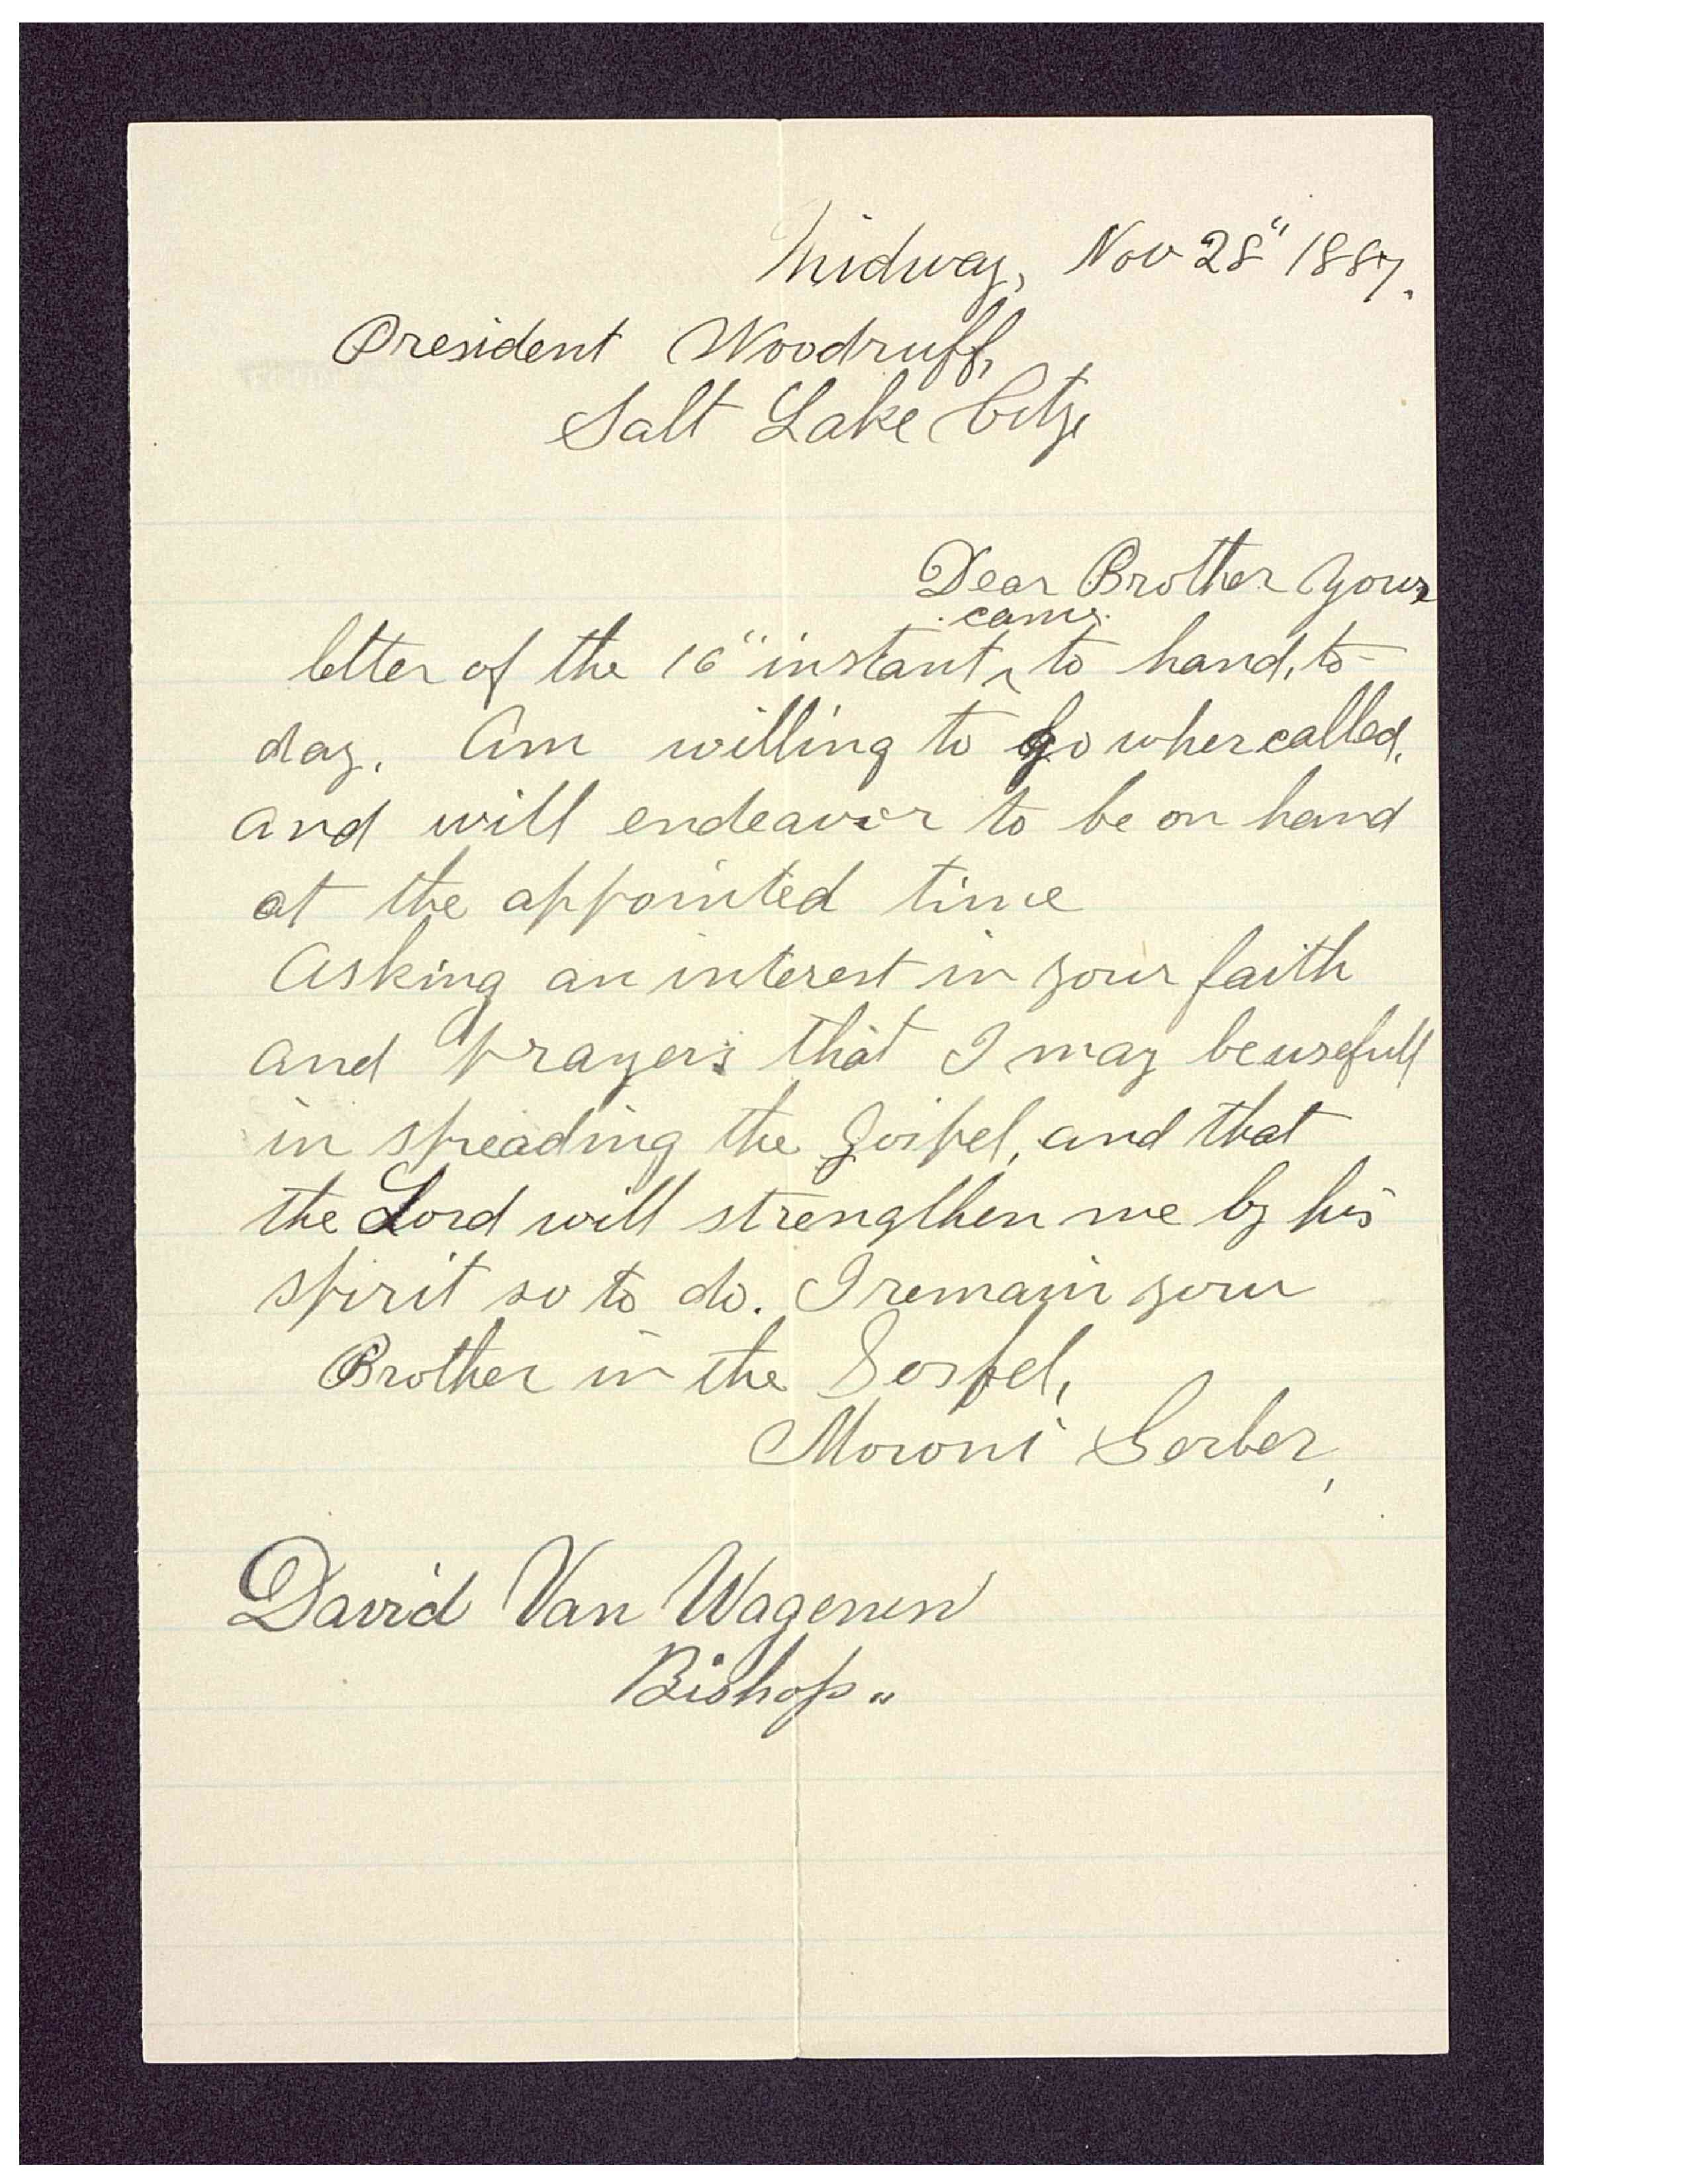 Midway, Nov 28" 1887.
President Woodruff,
Salt Lake City
Dear Brother your
came
letter of the 16" instant ^ to hand, to-
day. Am willing to go when called,
and will endeavor to be on hand
at the appointed time
Asking an interest in your faith
and prayers that I may be usefull
in spreading the Gospel, and that
the Lord will strengthen me by his
spirit so to do. I remain your
Brother in the Gospel,
Moroni Gerber,
David Van Wagenen
Bishop"